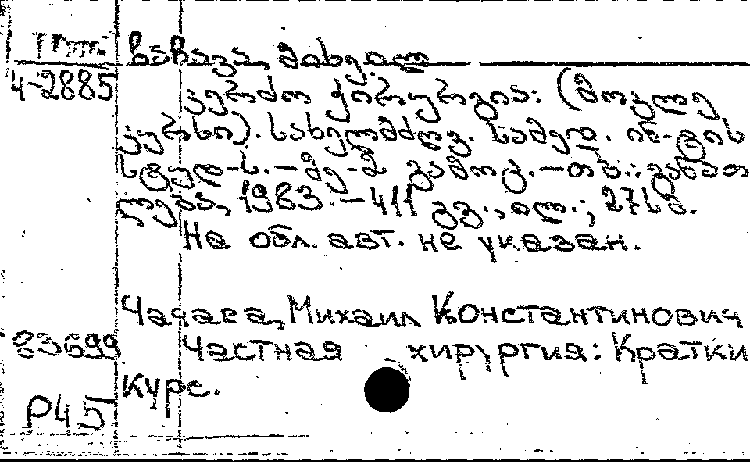 ჩაჩავა, მიხეილ
4-2885 კერძო ქირურგია: (მოკლე
კურსი). სახელმძღვ. სამედ. ინ-ტის
სტუდ-ს. -მე-2 გამოც. -თბ.: განათ
ლება, 1983. -411 გვ., ილ.; 27სმ.
На обл. авт. не указан.
Чачава, Михаил Константинович
83699 Частная хирургия: Кратки
курс.
Р45